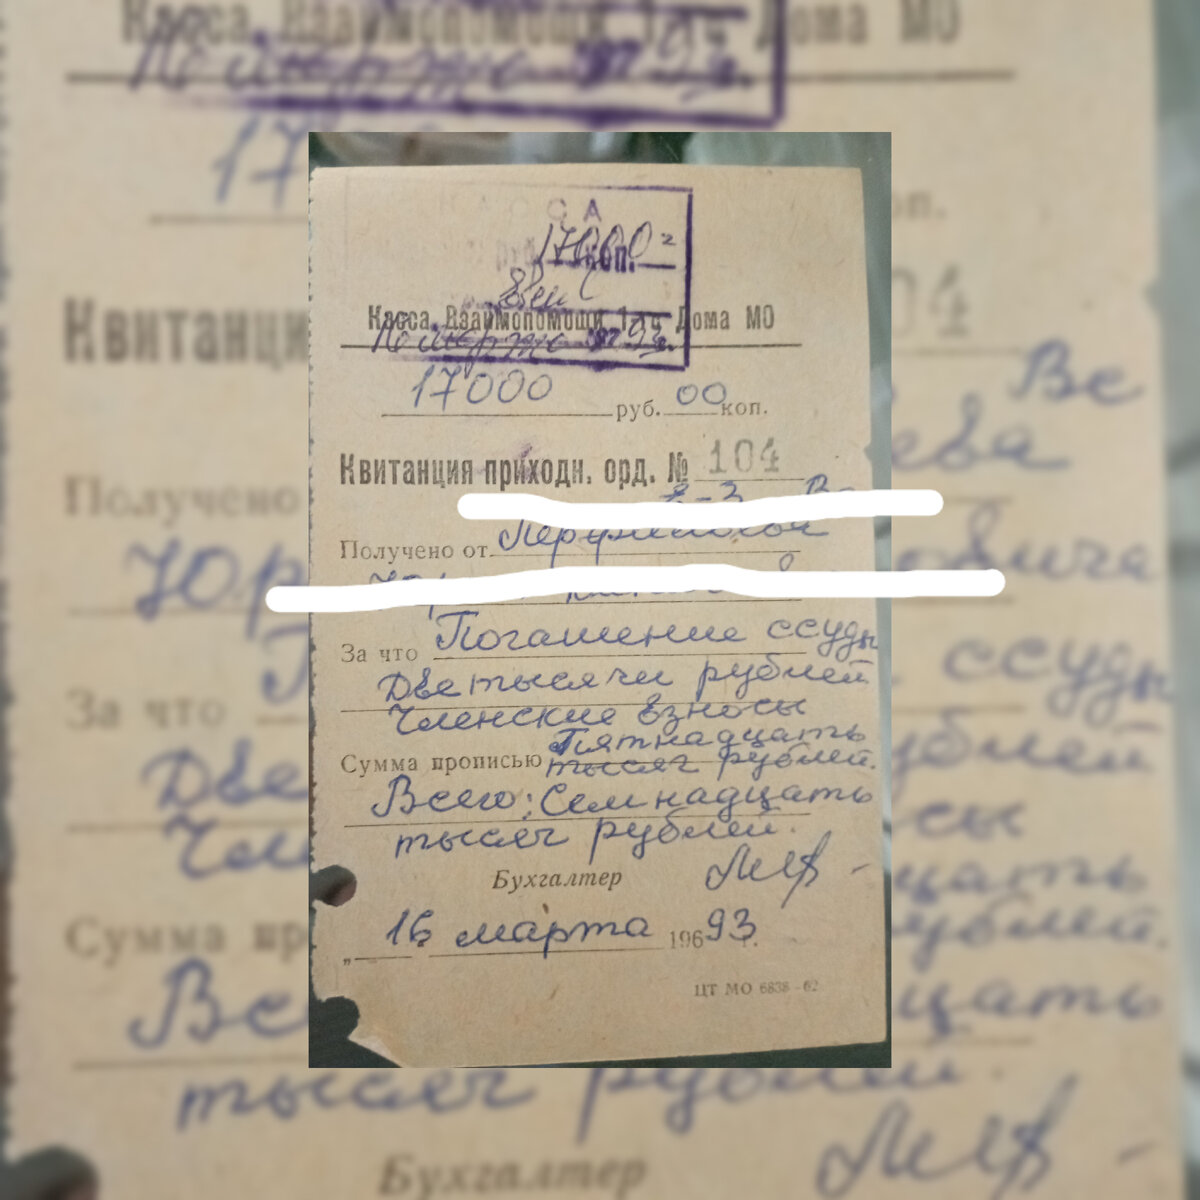 КАССА
руб. 17000 коп.
Касса Взаимопомощи 1-го Дома МО
16 марта 93г.
17000 руб. 00 коп.
Квитанция приходн. орд. № 104
Получено от
За что Погашение ссуды
Две тысячи рублей
Членские взносы
Сумма прописью Пятнадцать
тысяч рублей.
Всего: Семнадцать
тысяч рублей.
Бухгалтер
„16 марта 196 93 г.
ЦТ МО 6838-62